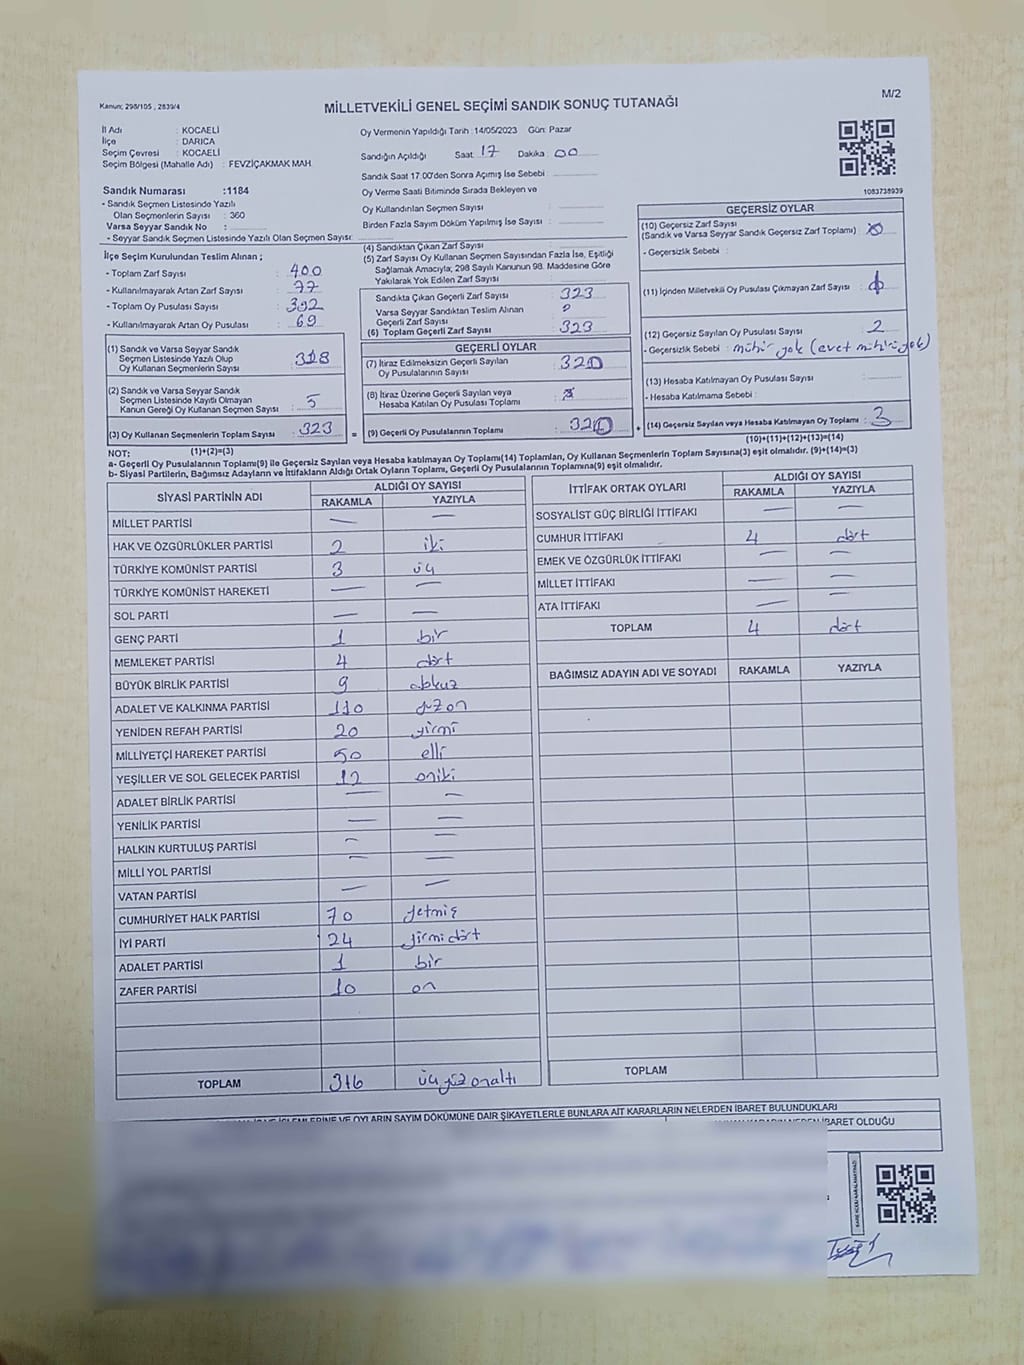 Kanun; 298/105 , 2839/4
MİLLETVEKİLİ GENEL SEÇİMİ SANDIK SONUÇ TUTANAĞI
M/2
İl Adı : KOCAELİ
İlçe : DARICA
Seçim Çevresi : KOCAELİ
Seçim Bölgesi (Mahalle Adı) : FEVZİÇAKMAK MAH.
Sandık Numarası :1184
- Sandık Seçmen Listesinde Yazılı
Olan Seçmenlerin Sayısı : 360
Varsa Seyyar Sandık No :
- Seyyar Sandık Seçmen Listesinde Yazılı Olan Seçmen Sayısı:
Oy Vermenin Yapıldığı Tarih :14/05/2023 Gün: Pazar
Sandığın Açıldığı Saat 17 Dakika 00
Sandık Saat 17:00'den Sonra Açımış İse Sebebi :
Oy Verme Saati Bitiminde Sırada Bekleyen ve
Oy Kullandırılan Seçmen Sayısı :
Birden Fazla Sayım Döküm Yapılmış İse Sayısı :
1083738939
İlçe Seçim Kurulundan Teslim Alınan ;
- Toplam Zarf Sayısı : 400
- Kullanılmayarak Artan Zarf Sayısı : 77
- Toplam Oy Pusulası Sayısı : 392
- Kullanılmayarak Artan Oy Pusulası : 69
(1) Sandık ve Varsa Seyyar Sandık
Seçmen Listesinde Yazılı Olup
Oy Kullanan Seçmenlerin Sayısı : 318
(2) Sandık ve Varsa Seyyar Sandık
Seçmen Listesinde Kayıtlı Olmayan
Kanun Gereği Oy Kullanan Seçmen Sayısı : 5
(3) Oy Kullanan Seçmenlerin Toplam Sayısı : 323
(4) Sandıktan Çıkan Zarf Sayısı :
(5) Zarf Sayısı Oy Kullanan Seçmen Sayısından Fazla İse, Eşitliği
Sağlamak Amacıyla; 298 Sayılı Kanunun 98. Maddesine Göre
Yakılarak Yok Edilen Zarf Sayısı :
Sandıkta Çıkan Geçerli Zarf Sayısı : 323
Varsa Seyyar Sandıktan Teslim Alınan
Geçerli Zarf Sayısı :
(6) Toplam Geçerli Zarf Sayısı : 323
GEÇERLİ OYLAR
(7) İtiraz Edilmeksizin Geçerli Sayılan
Oy Pusulalarının Sayısı : 320
(8) İtiraz Üzerine Geçerli Sayılan veya
Hesaba Katılan Oy Pusulası Toplamı :
= (9) Geçerli Oy Pusulalarının Toplamı : 320 +
GEÇERSİZ OYLAR
(10) Geçersiz Zarf Sayısı
(Sandık ve Varsa Seyyar Sandık Geçersiz Zarf Toplamı) :
- Geçersizlik Sebebi :
(11) İçinden Milletvekili Oy Pusulası Çıkmayan Zarf Sayısı :
(12) Geçersiz Sayılan Oy Pusulası Sayısı : 2
- Geçersizlik Sebebi : mühür yok (evet mührü yok)
(13) Hesaba Katılmayan Oy Pusulası Sayısı :
- Hesaba Katılmama Sebebi :
(14) Geçersiz Sayılan veya Hesaba Katılmayan Oy Toplamı : 3
NOT: (1)+(2)=(3)
(10)+(11)+(12)+(13)=(14)
a- Geçerli Oy Pusulalarının Toplamı(9) ile Geçersiz Sayılan veya Hesaba katılmayan Oy Toplamı(14) Toplamları, Oy Kullanan Seçmenlerin Toplam Sayısına(3) eşit olmalıdır. (9)+(14)=(3)
b- Siyasi Partilerin, Bağımsız Adayların ve İttifakların Aldığı Ortak Oyların Toplamı, Geçerli Oy Pusulalarının Toplamına(9) eşit olmalıdır.
SİYASİ PARTİNİN ADI ALDIĞI OY SAYISI
RAKAMLA YAZIYLA
MİLLET PARTİSİ — —
HAK VE ÖZGÜRLÜKLER PARTİSİ 2 iki
TÜRKİYE KOMÜNİST PARTİSİ 3 üç
TÜRKİYE KOMÜNİST HAREKETİ — —
SOL PARTİ — —
GENÇ PARTİ 1 bir
MEMLEKET PARTİSİ 4 dört
BÜYÜK BİRLİK PARTİSİ 9 dokuz
ADALET VE KALKINMA PARTİSİ 110 yüzon
YENİDEN REFAH PARTİSİ 20 yirmi
MİLLİYETÇİ HAREKET PARTİSİ 50 elli
YEŞİLLER VE SOL GELECEK PARTİSİ 12 oniki
ADALET BİRLİK PARTİSİ — —
YENİLİK PARTİSİ — —
HALKIN KURTULUŞ PARTİSİ — —
MİLLİ YOL PARTİSİ — —
VATAN PARTİSİ — —
CUMHURİYET HALK PARTİSİ 70 yetmiş
İYİ PARTİ 24 yirmidört
ADALET PARTİSİ 1 bir
ZAFER PARTİSİ 10 on
TOPLAM 316 üçyüzonaltı
İTTİFAK ORTAK OYLARI ALDIĞI OY SAYISI
RAKAMLA YAZIYLA
SOSYALİST GÜÇ BİRLİĞİ İTTİFAKI — —
CUMHUR İTTİFAKI 4 dört
EMEK VE ÖZGÜRLÜK İTTİFAKI — —
MİLLET İTTİFAKI — —
ATA İTTİFAKI — —
TOPLAM 4 dört
BAĞIMSIZ ADAYIN ADI VE SOYADI RAKAMLA YAZIYLA
TOPLAM
İŞLEMLERİNE VE OYLARIN SAYIM DÖKÜMÜNE DAİR ŞİKAYETLERLE BUNLARA AİT KARARLARIN NELERDEN İBARET BULUNDUKLARI
İBARET OLDUĞU